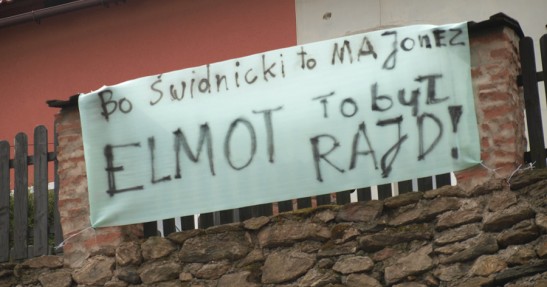 Bo Świdnicki to MAJonez
ELMOT To był
RAJD!